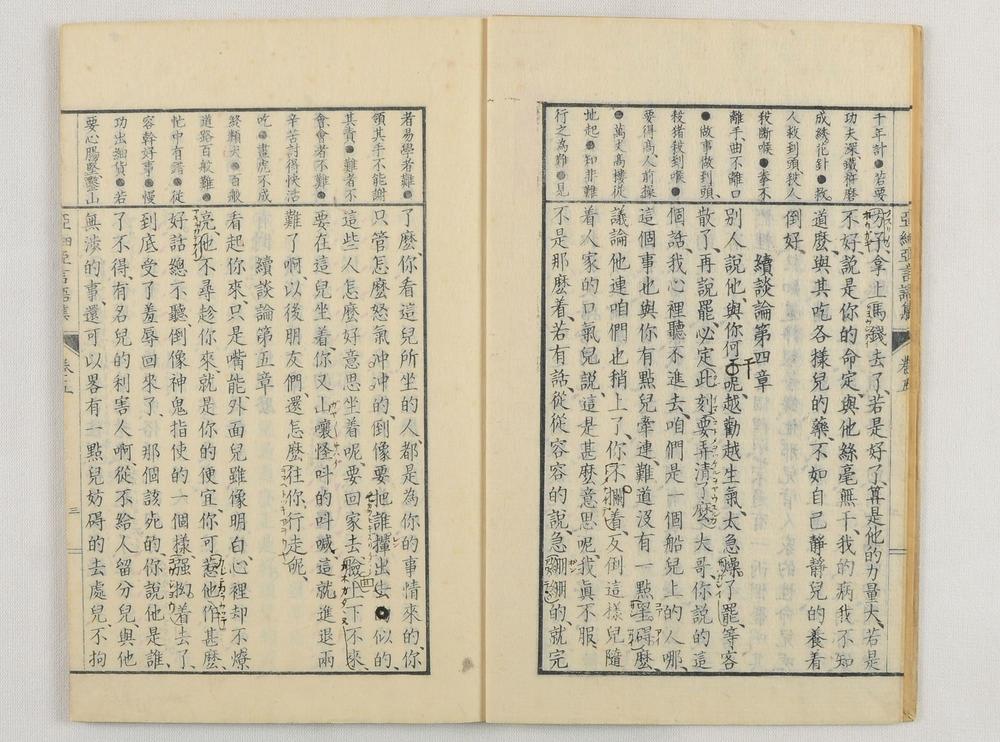 千年計●若要
功夫深鐵杵磨
成綉花針●救
人救到頭殺人
殺斷喉●拳不
離手曲不離口
●做事做到頭
殺猪殺到喉●
要得高人前操
●萬丈高樓從
地起●知非難
行之為難●見
方子拿上馮錢去了、若是好了、算是他的力量大、若是
不好、說是你的命定、與他絲毫無干、我的病我不知
道麼、與其吃各樣兒的藥、不如自己靜靜兒的養着
倒好、
續談論第四章
別人說他、與你何干呢、越勸越生氣、太急燥了罷、等客
散了、再說罷、必定此刻要弄清了麼、大哥、你說的這
個話、我心裡聽不進去、咱們是一個船兒上的人哪、
這個事也與你有點兒牽連、難道沒有一點罣碍麼、
議論他、連咱們也稍上了、你不攔着、反倒這樣兒隨
着人家的口氣兒說、這是甚麼意思呢、我真不服、
不是那麼着、若有話、從從容容的說、急綳綳的就完
亞細亞言語集 卷五
者易學者難●
領其手不能謝
其責●難者不
會會者不難●
辛苦討得快活
吃●畫虎不成
終類犬●百般
道路百般難●
忙中有錯●從
容幹好事●慢
功出細貨●若
要心腸堅鑿山
了麼、你看這兒所坐的人、都是為你的事情來的、你
只管怎麼怒氣沖沖的、倒像要把誰攆出去似的、
這些人怎麼好意思坐着呢、要回家去、臉上下不來、
要在這兒坐着、你又山嚷怪叫的呌喊、這就進退兩
難了啊、以後朋友們還怎麼往你行走呢、
續談論第五章
看起你來、只是嘴能、外面兒雖像明白、心裡却不燎
亮、他不尋趁你來、就是你的便宜、你可惹他作甚麼、
好話總不聽、倒像神鬼指使的一個樣、强扨着去了、
到底受了羞辱回來了、那個該死的、你說他是誰、
了不得、有名兒的利害人啊、從不給人留分兒、與他
無涉的事、還可以畧有一點兒妨碍的去處兒、不拘
亞細亞言語集 卷五 三